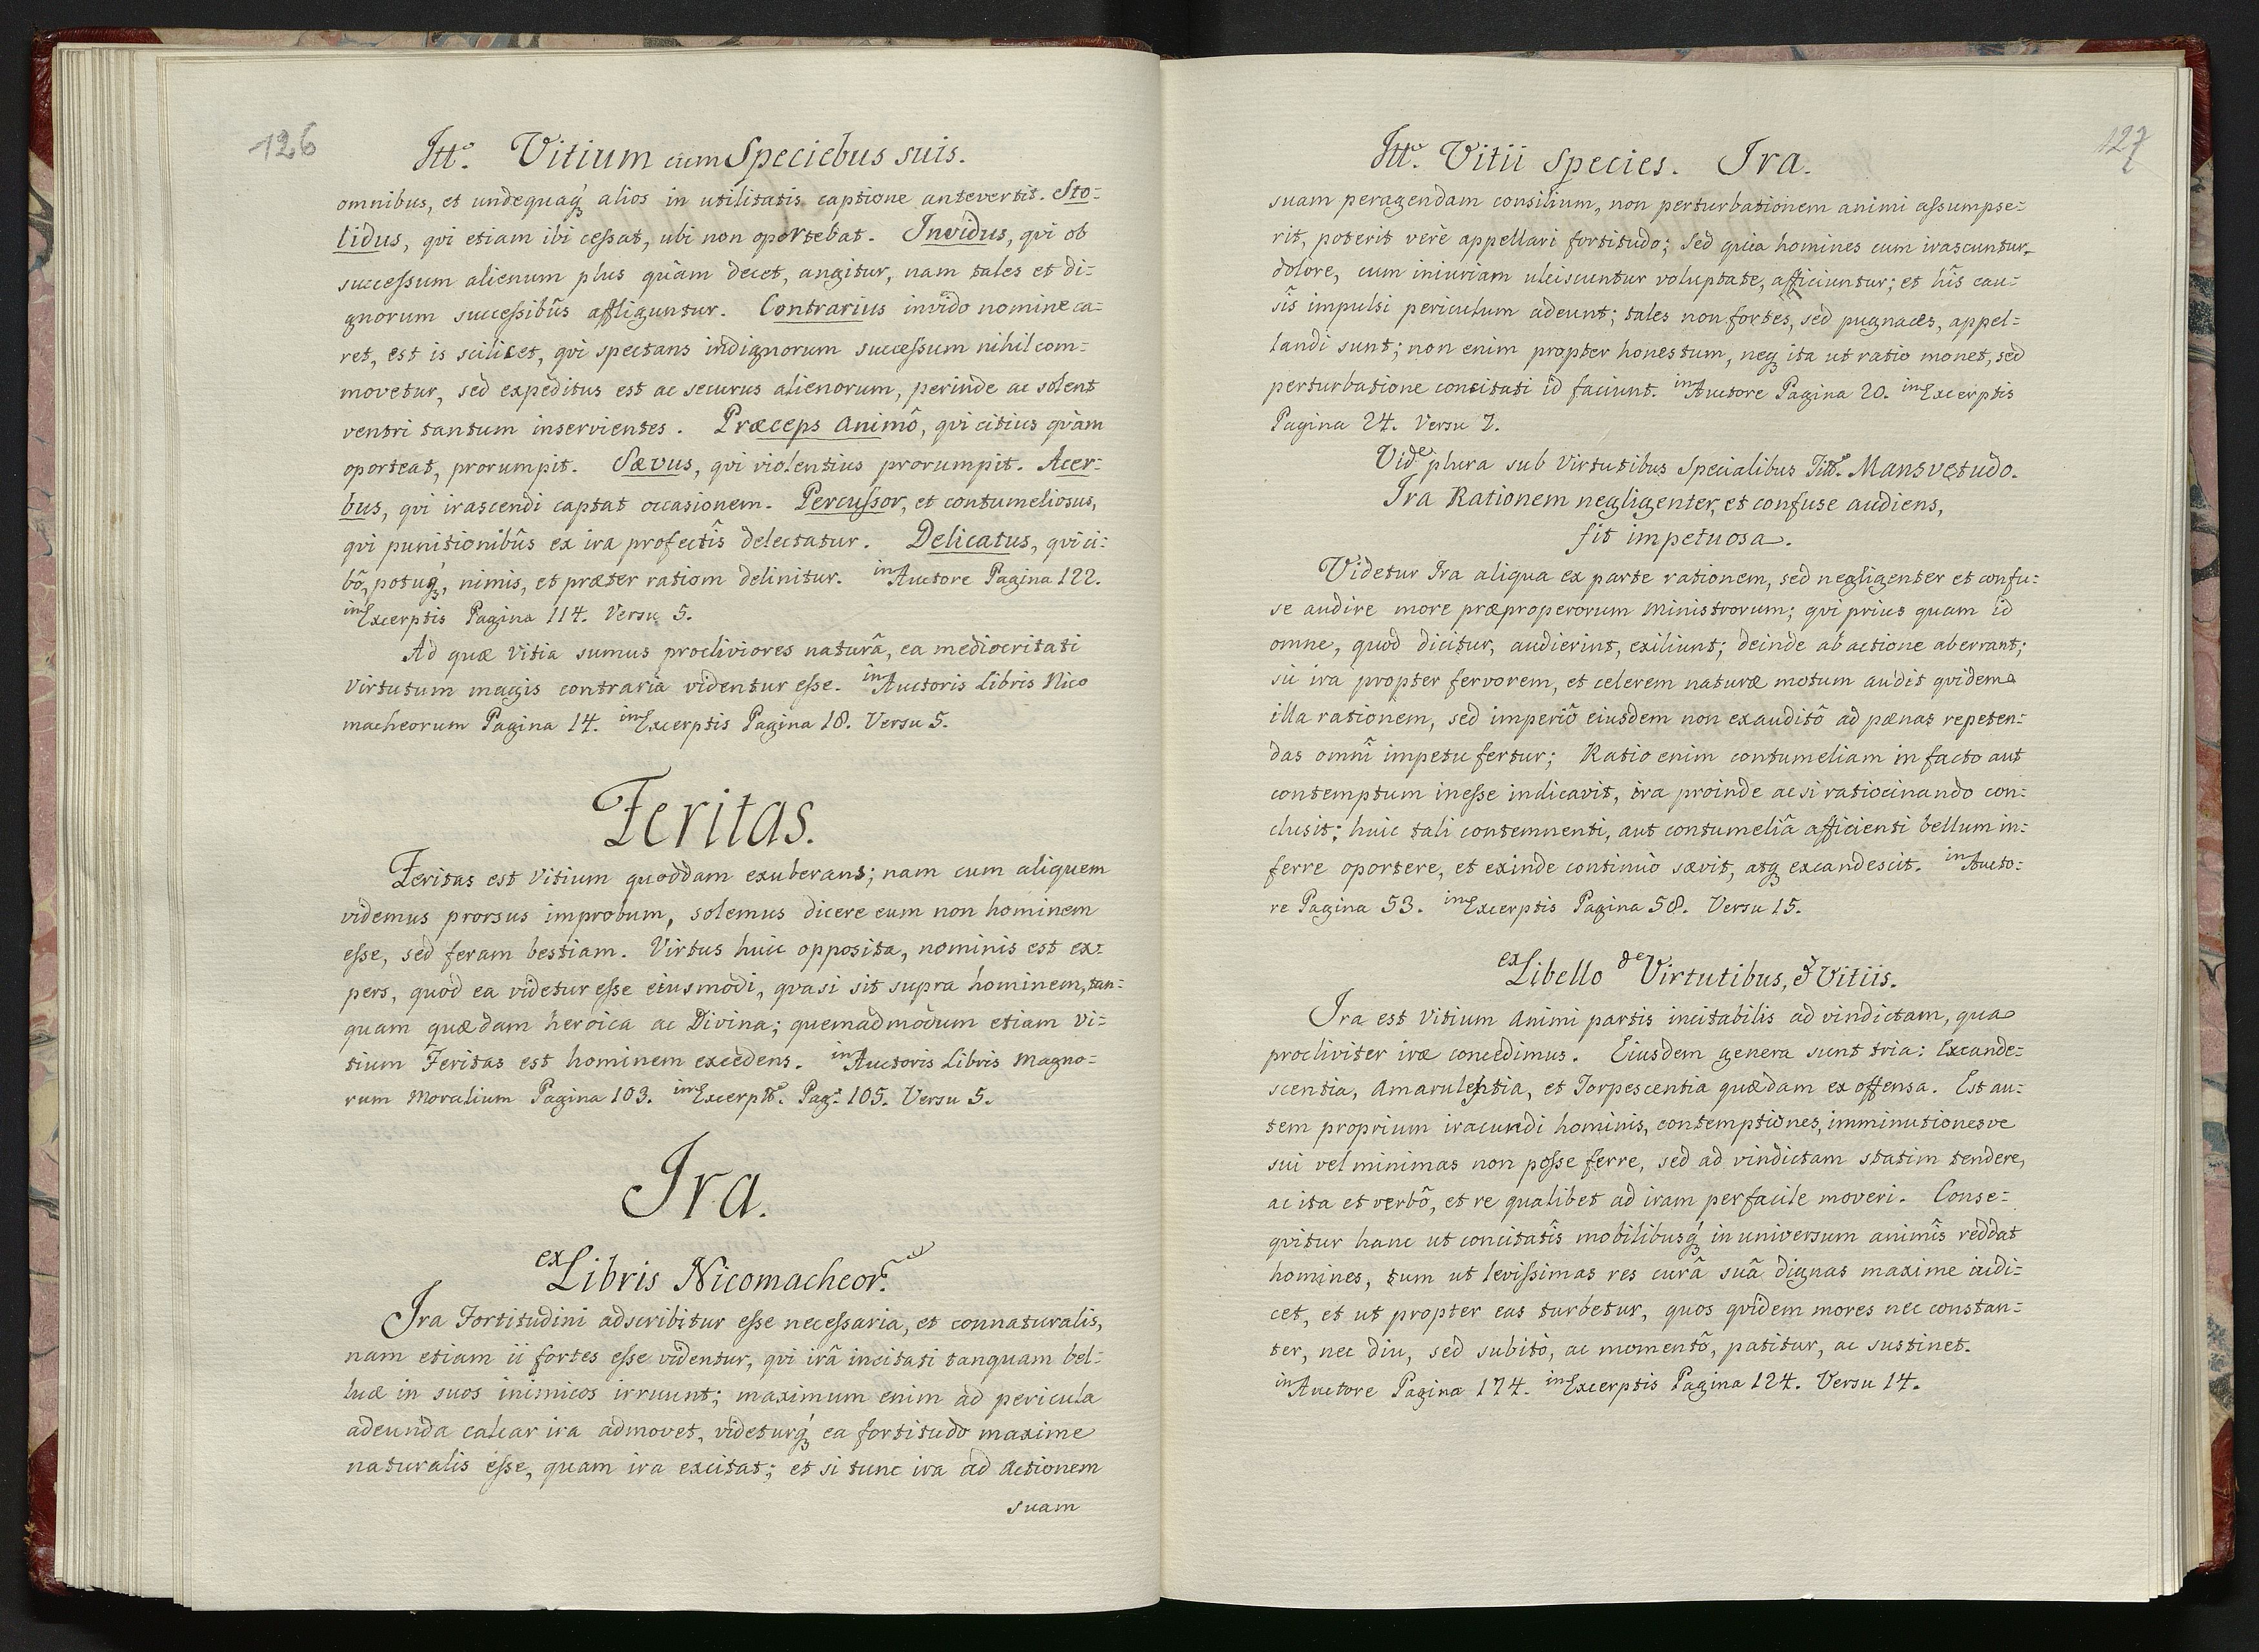 126
Ittº. Vitium cum Speciebus suis.
omnibus, et undequaq́ȝ alios in utilitatis captione antevertit. Sto:
lidus, qvi etiam ibi ceſsat, ubi non oportebat. Invidus, qvi ob
succeſsum alienum plus quàm decet, angitur, nam tales et di:
gnorum succeſsibûs affliguntur. Contrarius invido nomine ca:
ret, est is scilicet, qvi spectans indignorum succeſsum nihil com:
movetur, sed expeditus est ac securus alienorum, perinde ac solent
ventri tantum inservientes. Præceps animô, qvi citius qvàm
oporteat, prorumpit. Sævus, qvi violentius prorumpit. Acer:
bus, qvi irascendi captat occasionem. Percuſsor, et contumeliosus,
qvi punitionibûs ex ira profectîs delectatur. Delicatus, qvi ci:
bô, potuq́ȝ, nimis, et præter rationem delinitur. in Auctore Pagina 122.
in Excerptis Pagina 114. Versu 5.
Ad quæ Vitia sumus procliviores naturâ, ea mediocritati
Virtutum magis contraria videntur eſse. in Auctoris Libris Nico
macheorum Pagina 14. in Excerptis Pagina 18. Versu 5.
Feritas.
Feritas est Vitium quoddam exuberans; nam cum aliquem
videmus prorsus improbum, solemus dicere eum non hominem
eſse, sed feram bestiam. Virtus huic opposita, nominis est ex:
pers, quòd ea videtur eſse eiusmodi, qvasi sit supra hominem, tan:
quam quædam heroica ac Divina; quemadmodum etiam Vi:
tium Feritas est hominem excedens. in Auctoris Libris Magno:
rum Moralium Pagina 103. in Excerptº. Pagª. 105. Versu 5.
Ira.
ex Libris Nicomacheor.
Ira Fortitudini adscribitur eſse neceſsaria, et connaturalis,
nam etiam ii fortes eſse videntur, qvi irâ incitati tanquam bel:
luæ in suos inimicos irruunt; maximum enim ad pericula
adeunda calcar ira admovet, videturq́ȝ ea fortitudo maxime
naturalis eſse, quam ira excitat; et si tunc ira ad actionem
suam
127
Ittº. Vitii Species. Ira.
suam peragendam consilium, non perturbationem animi aſsumpse:
rit, poterit verè appellari fortitudo; sed quia homines cum irascuntur,
dolore, cum iniuriam ulciscuntur voluptate, afficiuntur; et hîs cau:
sîs impulsi periculum adeunt; tales non fortes, sed pugnaces, appel:
landi sunt; non enim propter honestum, neqȝ ita ut ratio monet, sed
perturbatione concitati id faciunt. in Auctore Pagina 20. in Excerptis
Pagina 24. Versu 7.
Vide plura sub Virtutibus Specialibus Tittº. Mansvetudo.
Ira Rationem negligenter, et confuse audiens,
fit impetuosa.
Videtur Ira aliqua ex parte rationem, sed negligenter et confu:
se audire more præproperorum Ministrorum; qvi prius quam id
omne, quod dicitur, audierint, exiliunt; deinde ab actione aberrant;
sic ira propter fervorem, et celerem naturæ motum audit qvidem
illa rationem, sed imperiô eiusdem non exauditô ad pænas repeten:
das omnî impetu fertur; Ratio enim contumeliam in facto aut
contemptum ineſse indicavit, ira proinde ac si ratiocinando con:
clusit: huic tali contemnenti, aut contumeliâ afficienti bellum in:
ferre oportere, et exinde continuò sævit, atqȝ excandescit. in Aucto:
re Pagina 53. in Excerptis Pagina 58. Versu 15.
ex Libello de Virtutibus, & Vitiis.
Ira est Vitium animi partis incitabilis ad vindictam, qua
procliviter iræ concedimus. Eiusdem genera sunt tria: Excande:
scentia, Amarulentia, et Torpescentia quædam ex offensa. Est au:
tem proprium iracundi hominis, contemptiones, imminutionesve
sui vel minimas non poſse ferre, sed ad vindictam statim tendere,
ac ita et verbô, et re qualibet ad iram perfacile moveri. Conse:
qvitur hanc ut concitatîs mobilibusq́ȝ in universum animîs reddat
homines, tum ut leviſsimas res curâ suâ dignas maxime iudi:
cet, et ut propter eas turbetur, quos qvidem mores nec constan:
ter, nec diu, sed subitò, ac momentô, patitur, ac sustinet.
in Auctore Pagina 174. in Excerptis Pagina 124. Versu 14.